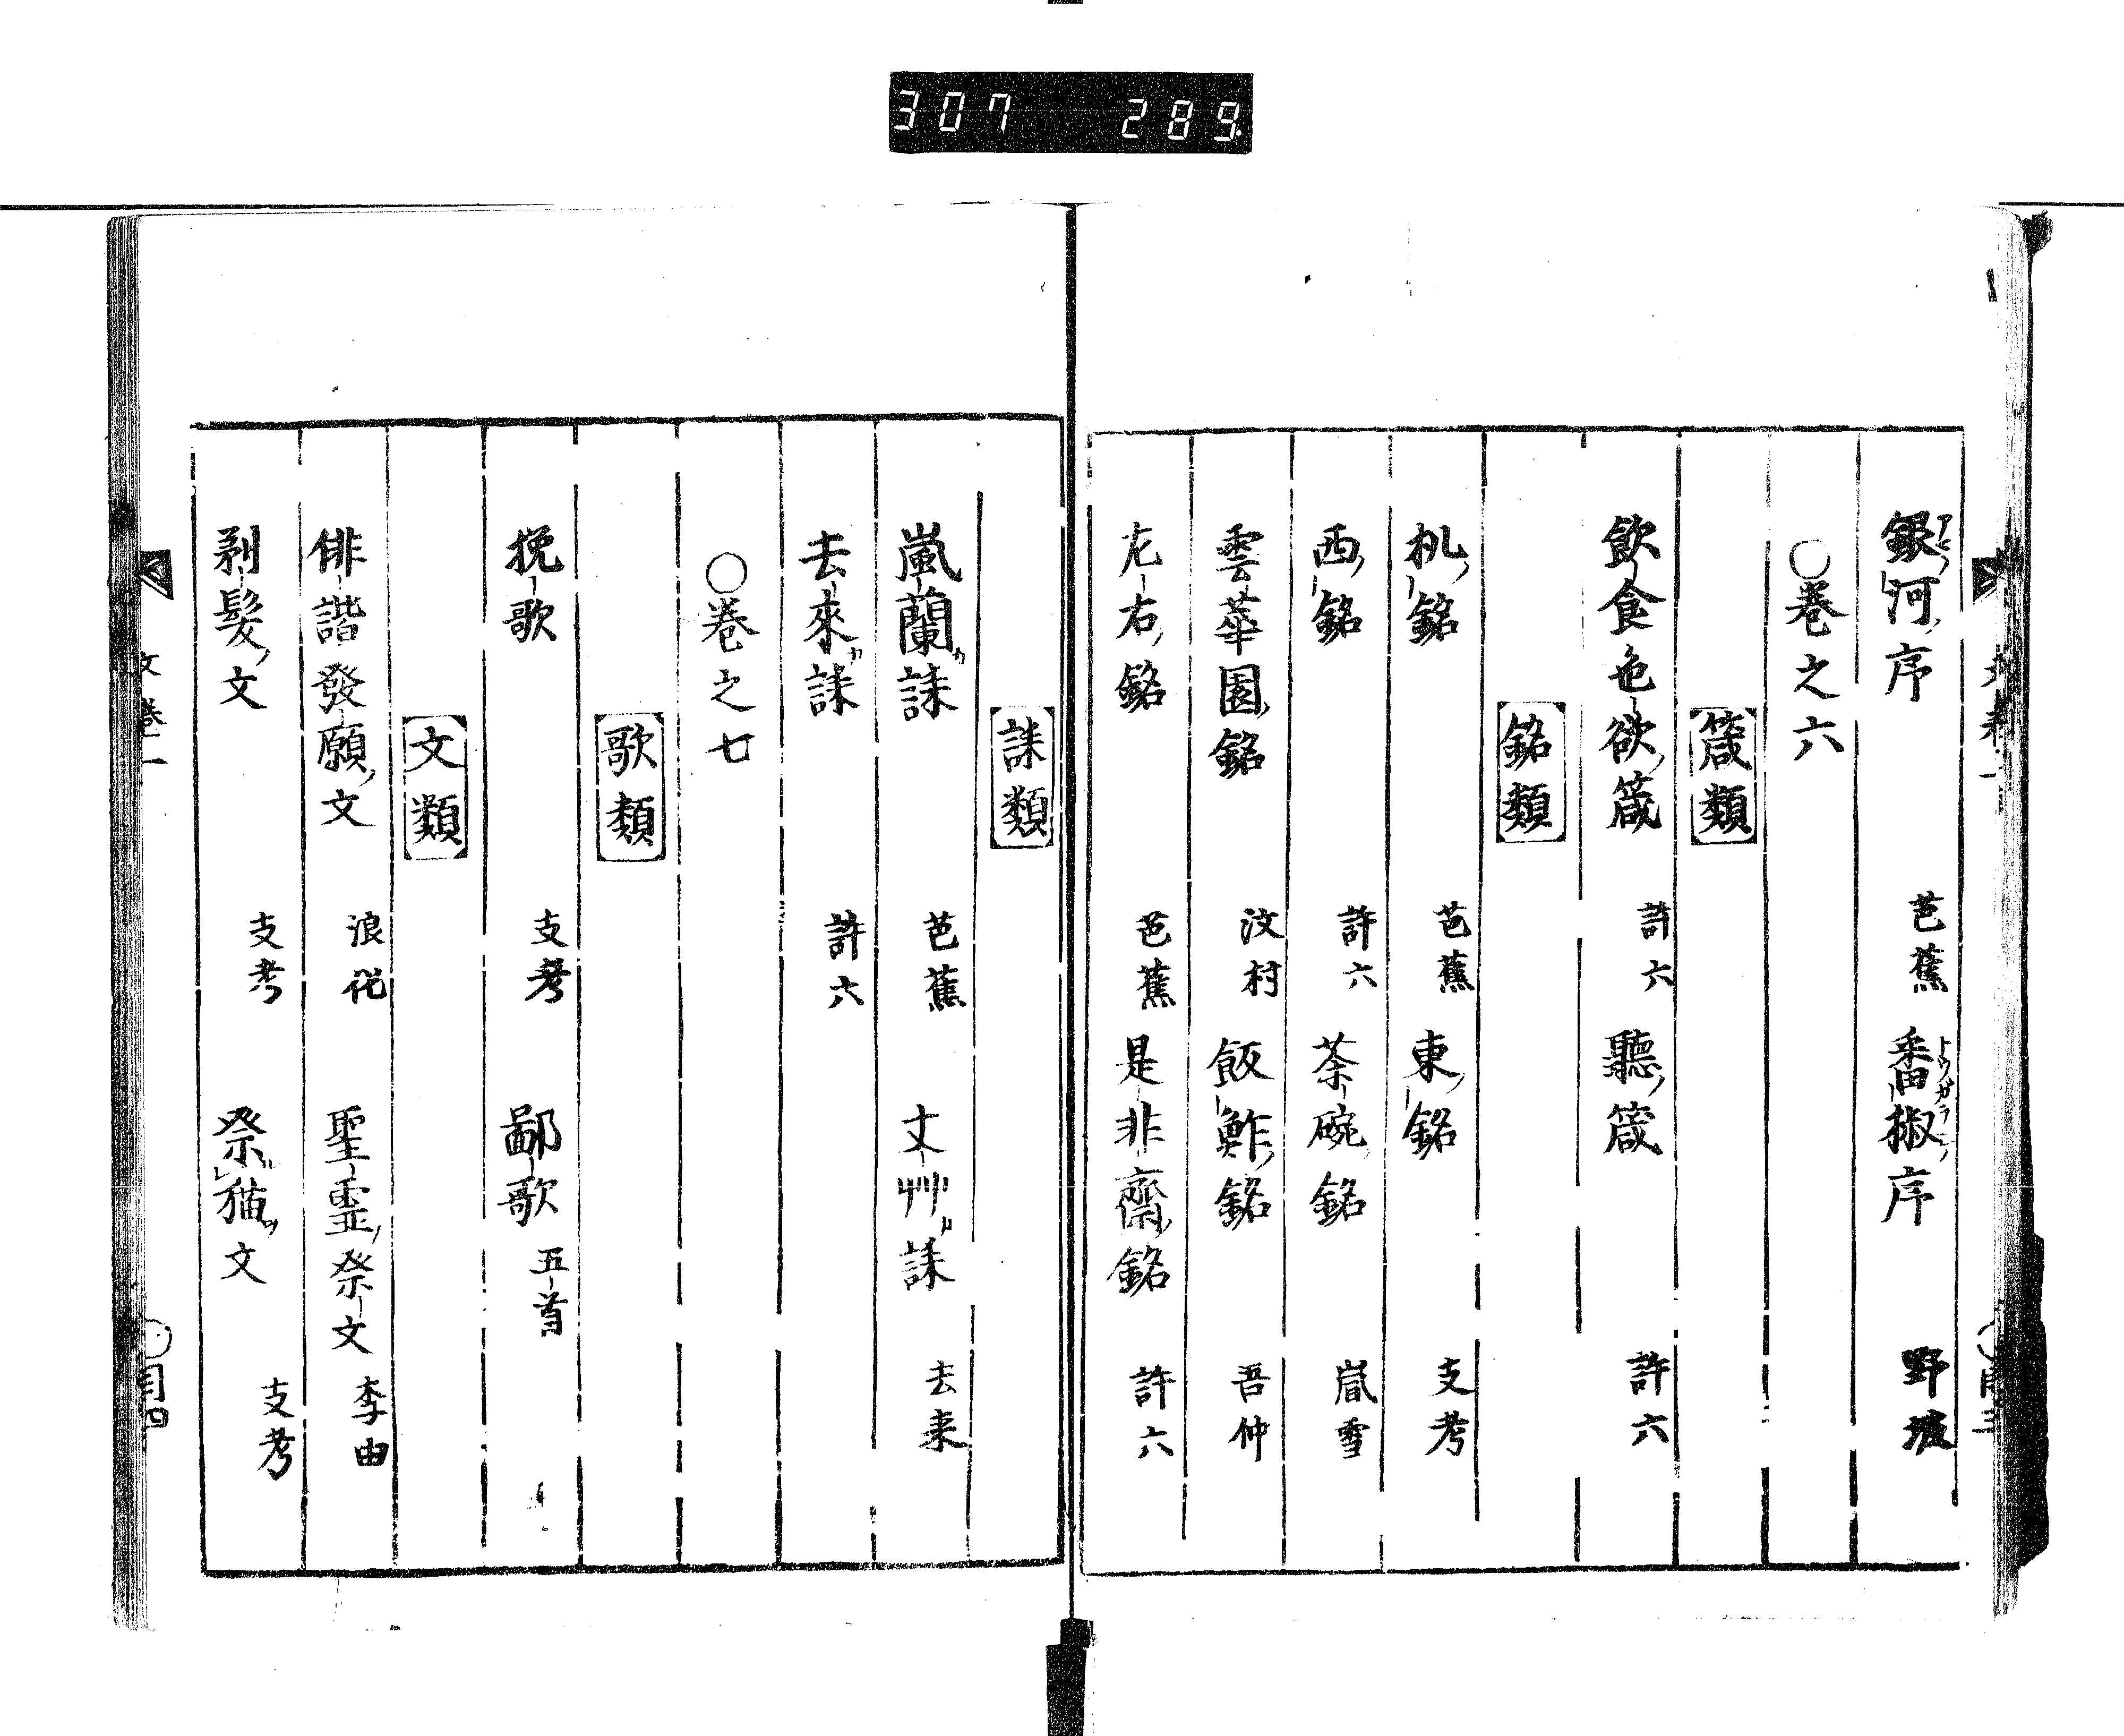 307 289
銀河序 芭蕉 番椒序 野坡
○巻之六
箴類
飲食色欲箴 許六 聽箴 許六
銘類
机銘 芭蕉 東銘 支考
西銘 許六 茶碗銘 嵐雪
雲華園銘 汶村 飯鮓銘 吾仲
左右銘 芭蕉 是非齋銘 許六
誄類
嵐蘭誄 芭蕉 丈艸誄 去来
去來誄 許六
○巻之七
歌類
挽歌 支考 鄙歌 五首
文類
俳諧發願文 浪化 聖霊祭文 李由
剃髪文 支考 祭猫文 支考
文巻一
目四